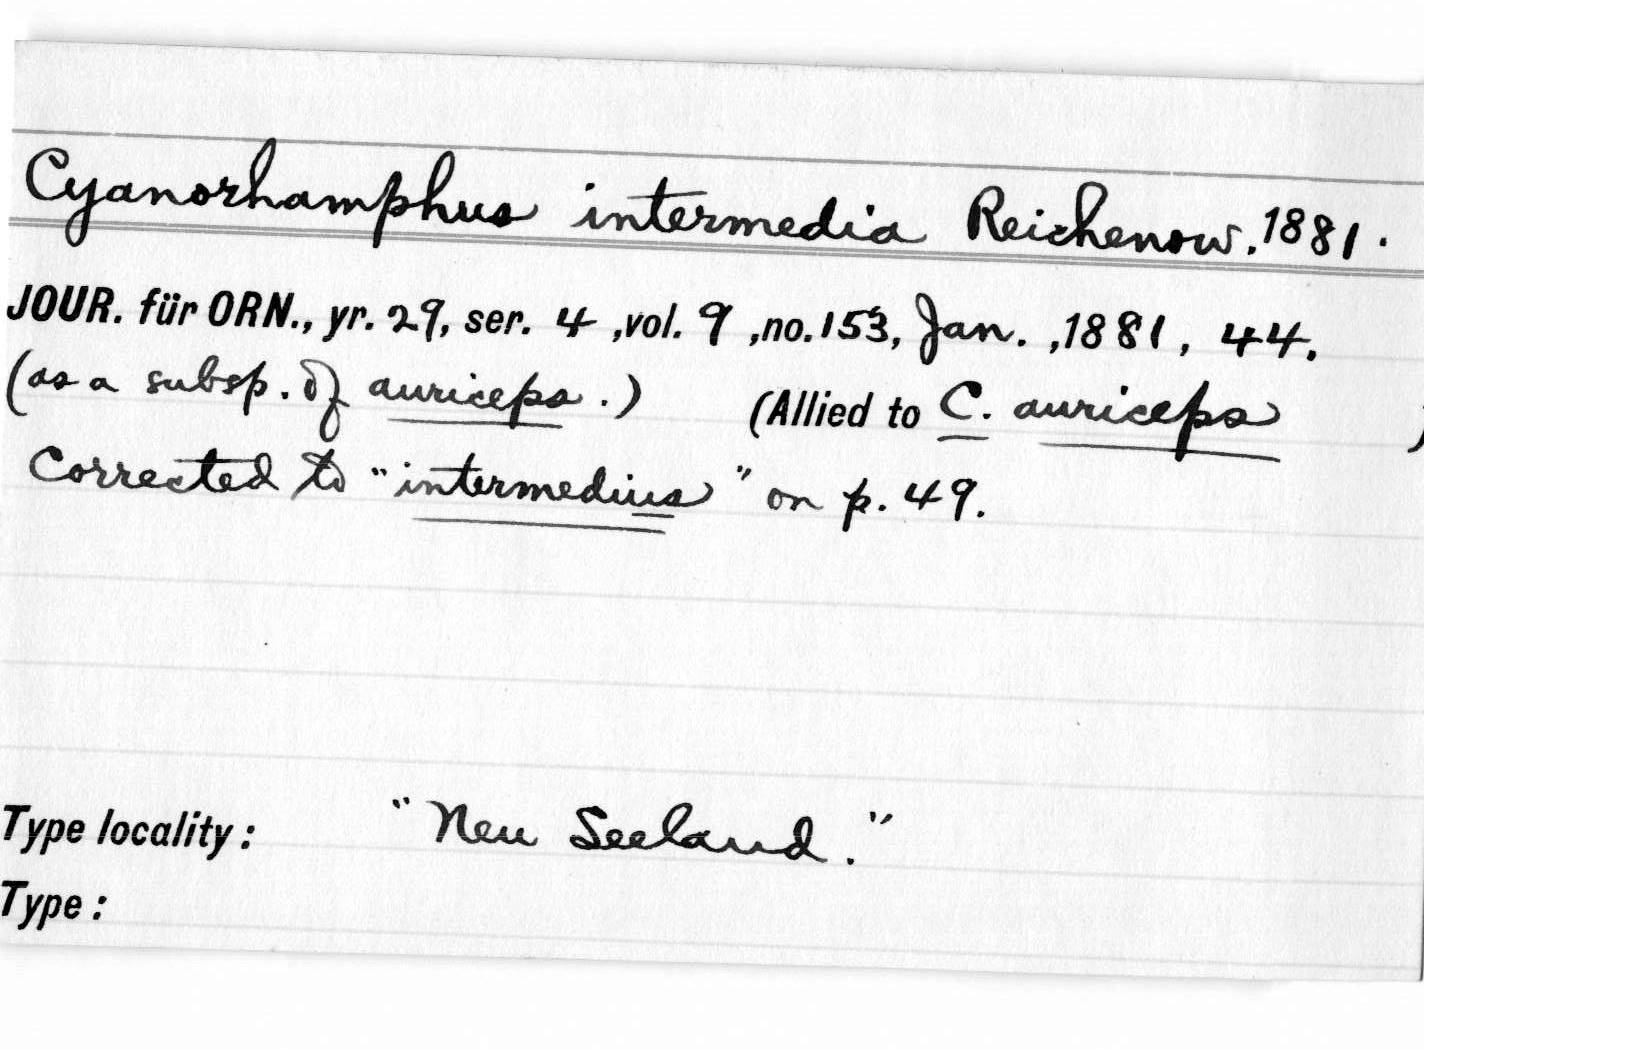 Cyanorhamphus intermedia Reichenow. 1881.
JOUR. für ORN., yr. 29, ser. 4 ,vol. 9 ,no. 153, Jan. ,1881, 44.
(as a subsp. of auriceps.) (Allied to C. auriceps )
Corrected to "intermedius" on p. 49.
Type locality: "Neu Seeland."
Type: